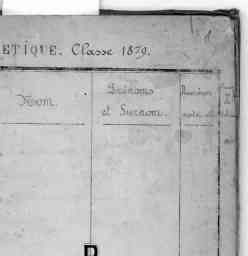 ETIQUE. Classe 1879.
Nom.
Prénoms
et Surnom.
Numéros
R